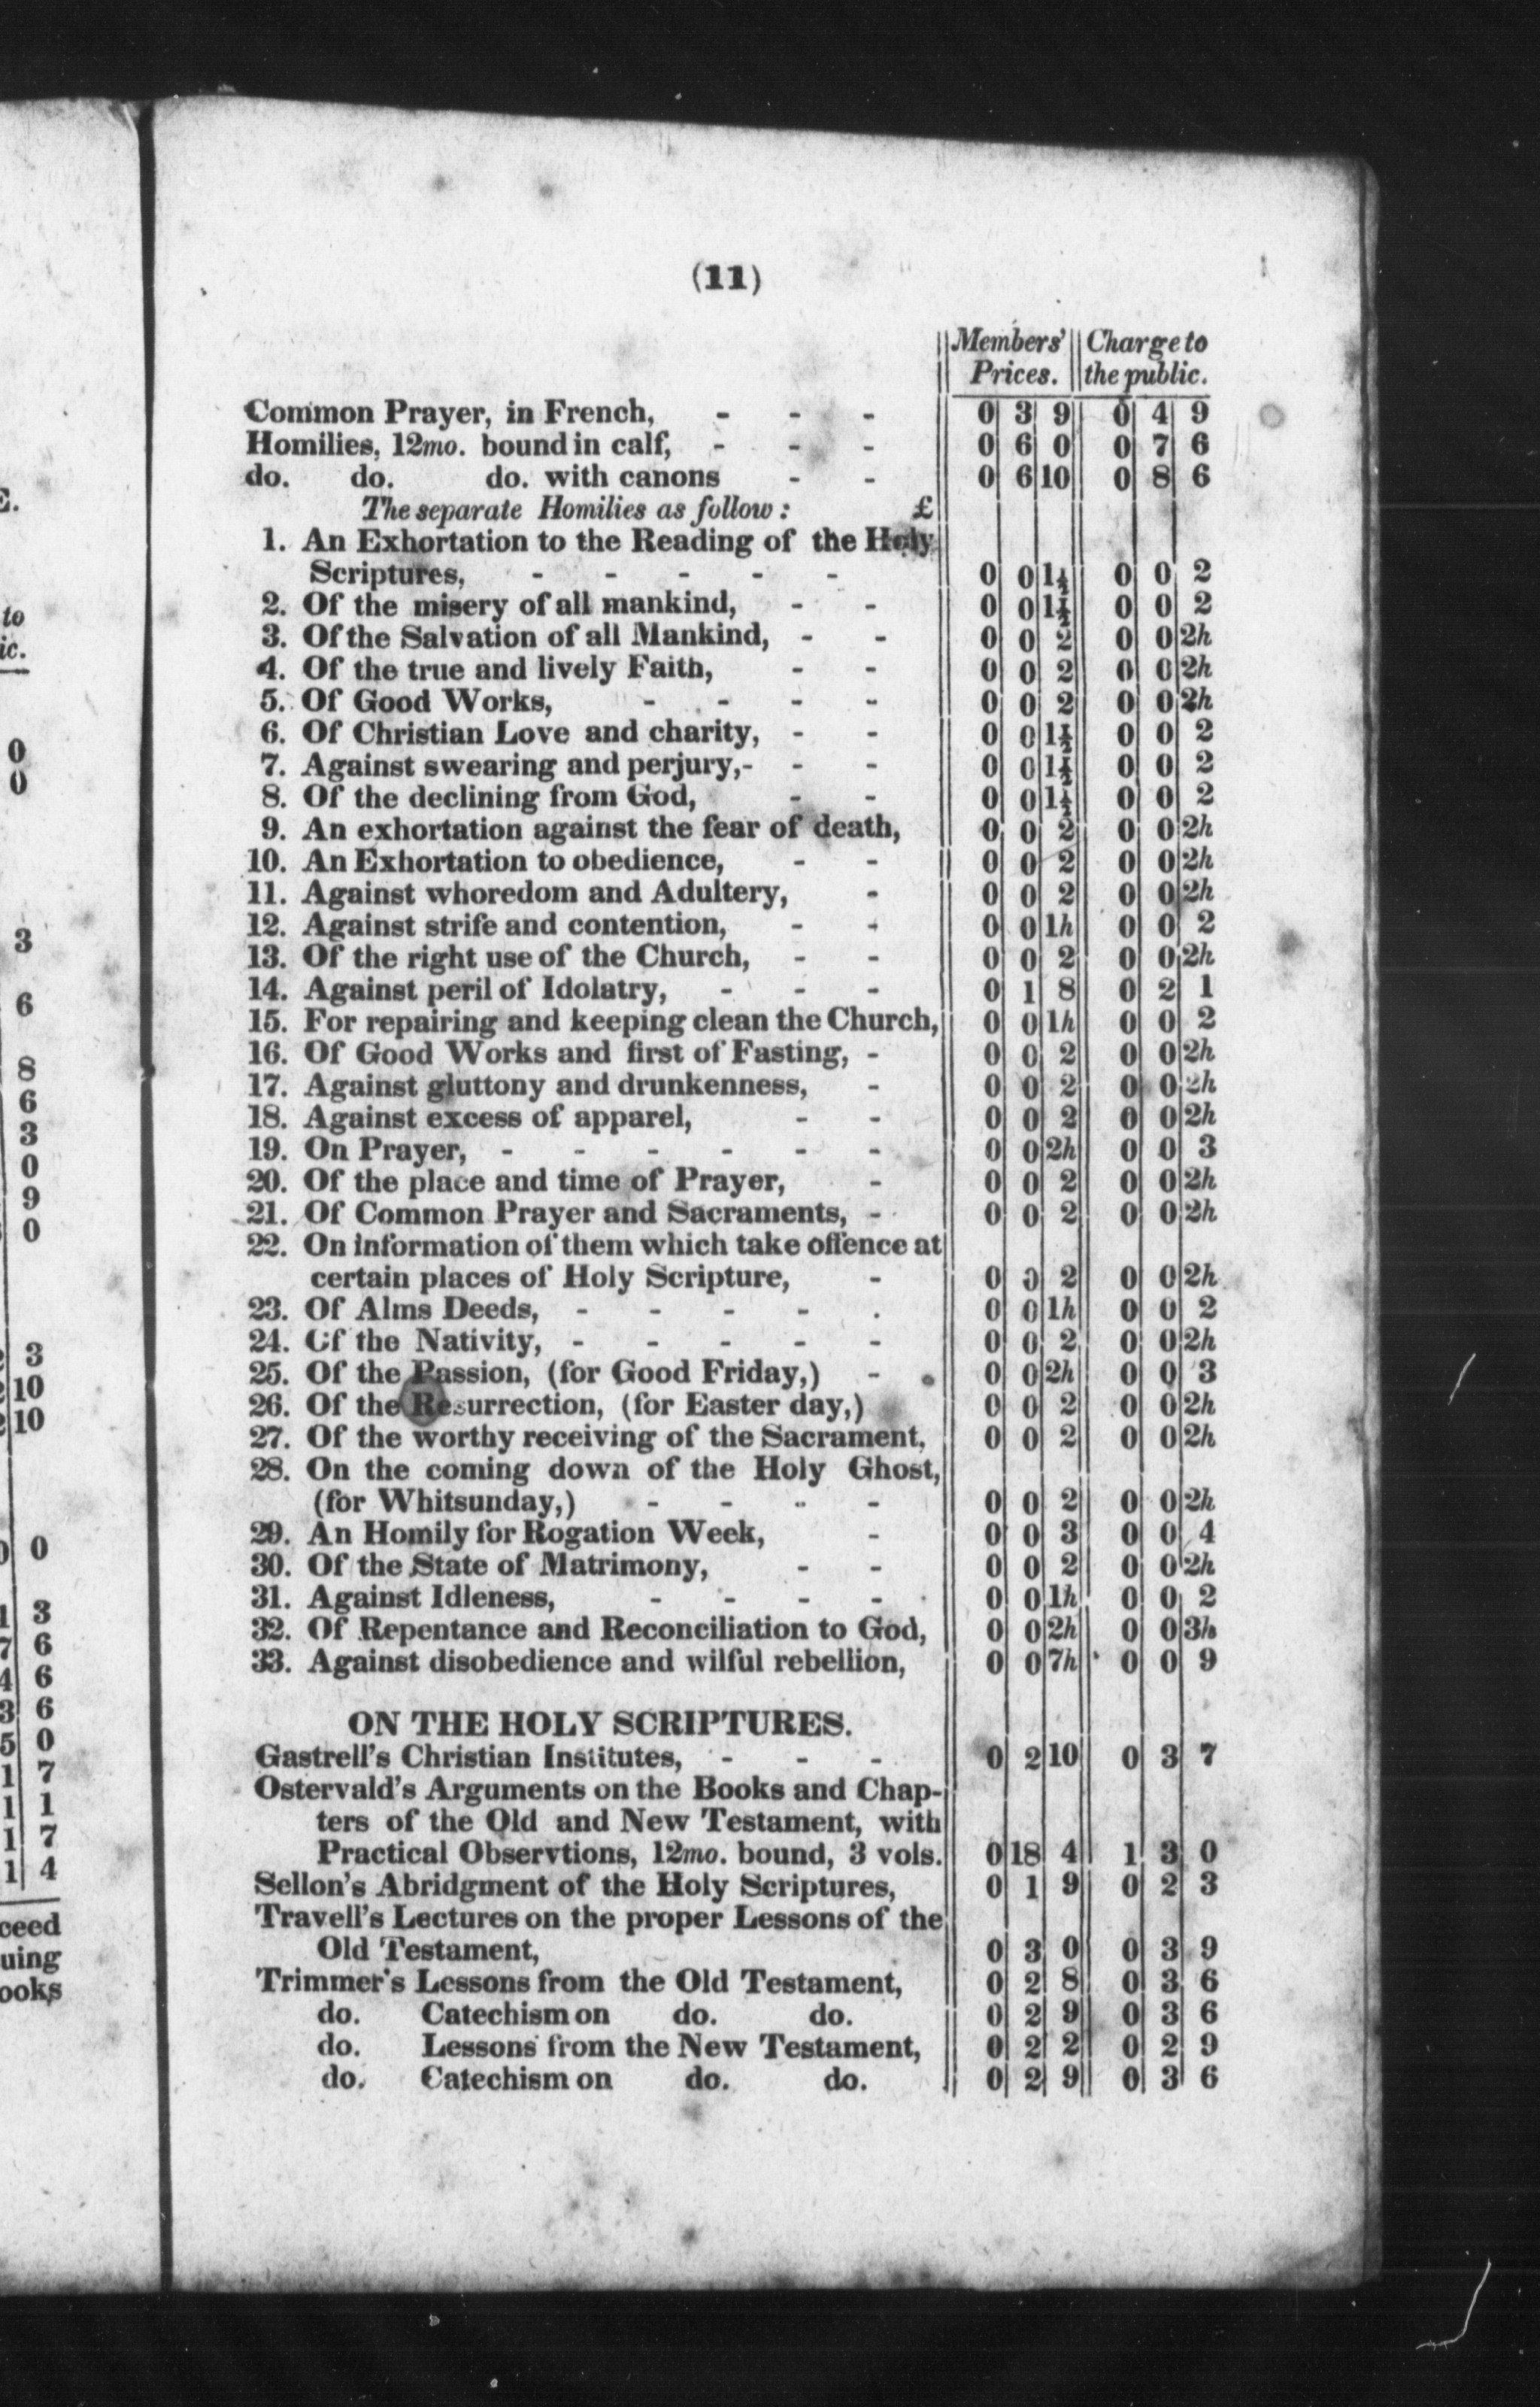 (11)
Members' Prices. Charge to the public.
Common Prayer, in French, - - - 0 3 9 0 4 9
Homilies, 12mo. bound in calf, - - - 0 6 0 0 7 6
do. do. do. with canons - - 0 6 10 0 8 6
The separate Homilies as follow: £
1. An Exhortation to the Reading of the Holy
Scriptures, - - - - - 0 0 1½ 0 0 2
2. Of the misery of all mankind, - - 0 0 1½ 0 0 2
3. Of the Salvation of all Mankind, - - 0 0 2 0 0 2h
4. Of the true and lively Faith, - - 0 0 2 0 0 2h
5. Of Good Works, - - - - 0 0 2 0 0 2h
6. Of Christian Love and charity, - - 0 0 1½ 0 0 2
7. Against swearing and perjury,- - - 0 0 1½ 0 0 2
8. Of the declining from God, - - 0 0 1½ 0 0 2
9. An exhortation against the fear of death, 0 0 2 0 0 2h
10. An Exhortation to obedience, - - 0 0 2 0 0 2h
11. Against whoredom and Adultery, - 0 0 2 0 0 2h
12. Against strife and contention, - - 0 0 1h 0 0 2
13. Of the right use of the Church, - - 0 0 2 0 0 2h
14. Against peril of Idolatry, - - - 0 1 8 0 2 1
15. For repairing and keeping clean the Church, 0 0 1h 0 0 2
16. Of Good Works and first of Fasting, - 0 0 2 0 0 2h
17. Against gluttony and drunkenness, - 0 0 2 0 0 2h
18. Against excess of apparel, - - 0 0 2 0 0 2h
19. On Prayer, - - - - - - 0 0 2h 0 0 3
20. Of the place and time of Prayer, - 0 0 2 0 0 2h
21. Of Common Prayer and Sacraments, - 0 0 2 0 0 2h
22. On information of them which take offence at
certain places of Holy Scripture, - 0 0 2 0 0 2h
23. Of Alms Deeds, - - - - . 0 0 1h 0 0 2
24. Of the Nativity, - - - - - 0 0 2 0 0 2h
25. Of the Passion, (for Good Friday,) - 0 0 2h 0 0 3
26. Of the Resurrection, (for Easter day,) 0 0 2 0 0 2h
27. Of the worthy receiving of the Sacrament, 0 0 2 0 0 2h
28. On the coming down of the Holy Ghost,
(for Whitsunday,) - - - - 0 0 2 0 0 2h
29. An Homily for Rogation Week, - 0 0 3 0 0 4
30. Of the State of Matrimony, - - 0 0 2 0 0 2h
31. Against Idleness, - - - - 0 0 1h 0 0 2
32. Of Repentance and Reconciliation to God, 0 0 2h 0 0 3h
33. Against disobedience and wilful rebellion, 0 0 7h 0 0 9
ON THE HOLY SCRIPTURES.
Gastrell's Christian Institutes, - - - 0 2 10 0 3 7
Ostervald's Arguments on the Books and Chap-
ters of the Old and New Testament, with
Practical Observtions, 12mo. bound, 3 vols. 0 18 4 1 3 0
Sellon's Abridgment of the Holy Scriptures, 0 1 9 0 2 3
Travell's Lectures on the proper Lessons of the
Old Testament, 0 3 0 0 3 9
Trimmer's Lessons from the Old Testament, 0 2 8 0 3 6
do. Catechism on do. do. 0 2 9 0 3 6
do. Lessons from the New Testament, 0 2 2 0 2 9
do. Catechism on do. do. 0 2 9 0 3 6